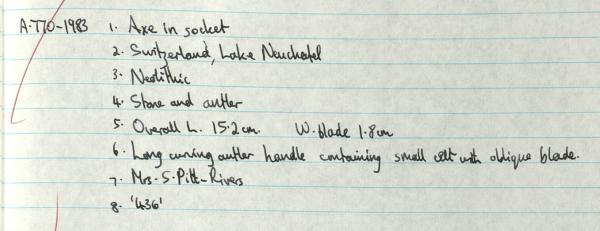 A.770-1983 1. Axe in socket
2. Switzerland, Lake Neuchatel
3. Neolithic
4. Stone and antler
5. Overall L. 15.2 cm. W. blade 1.8cm
6. Long curving antler handle containing small celt with oblique blade.
7. Mrs. S. Pitt-Rivers
8. '436'